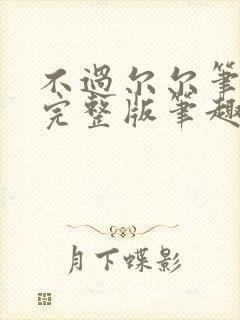 不過尔尔筆
完整版筆趣
月下蝶影